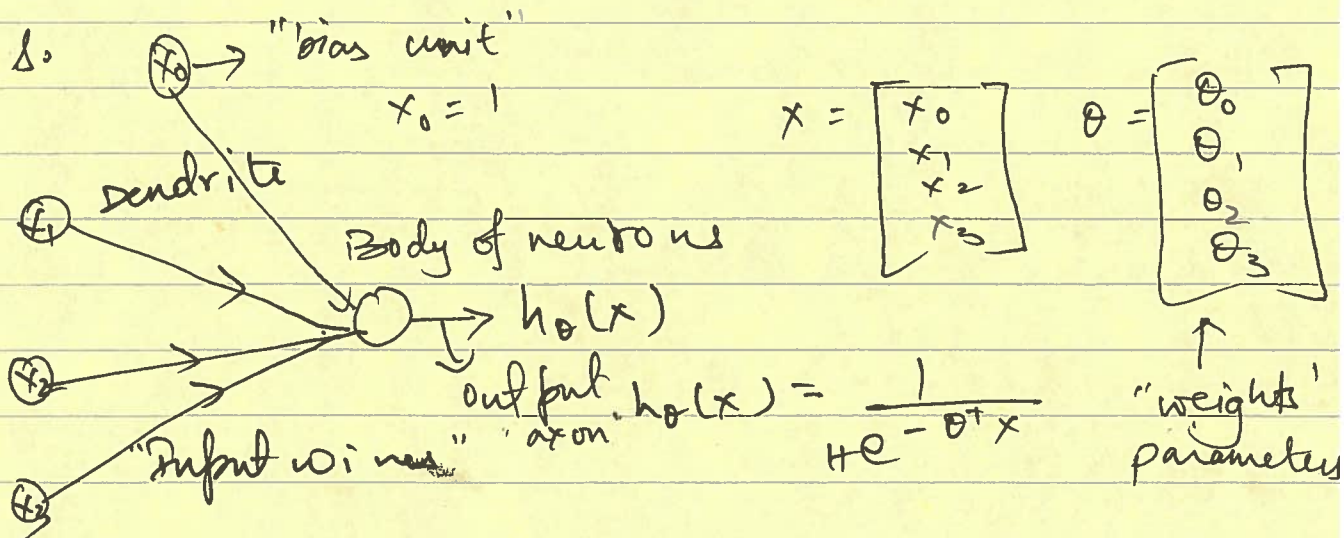 x₀ → "bias unit"
x₀ = 1
x = [x₀ x₁ x₂ x₃]
θ = [θ₀ θ₁ θ₂ θ₃]
Dendrite
x₁
Body of neurons
→ h_θ(x)
x₂
output axon
h_θ(x) = 1 / 1+e^(-θᵀx)
"weights'
parameters
"Input wires"